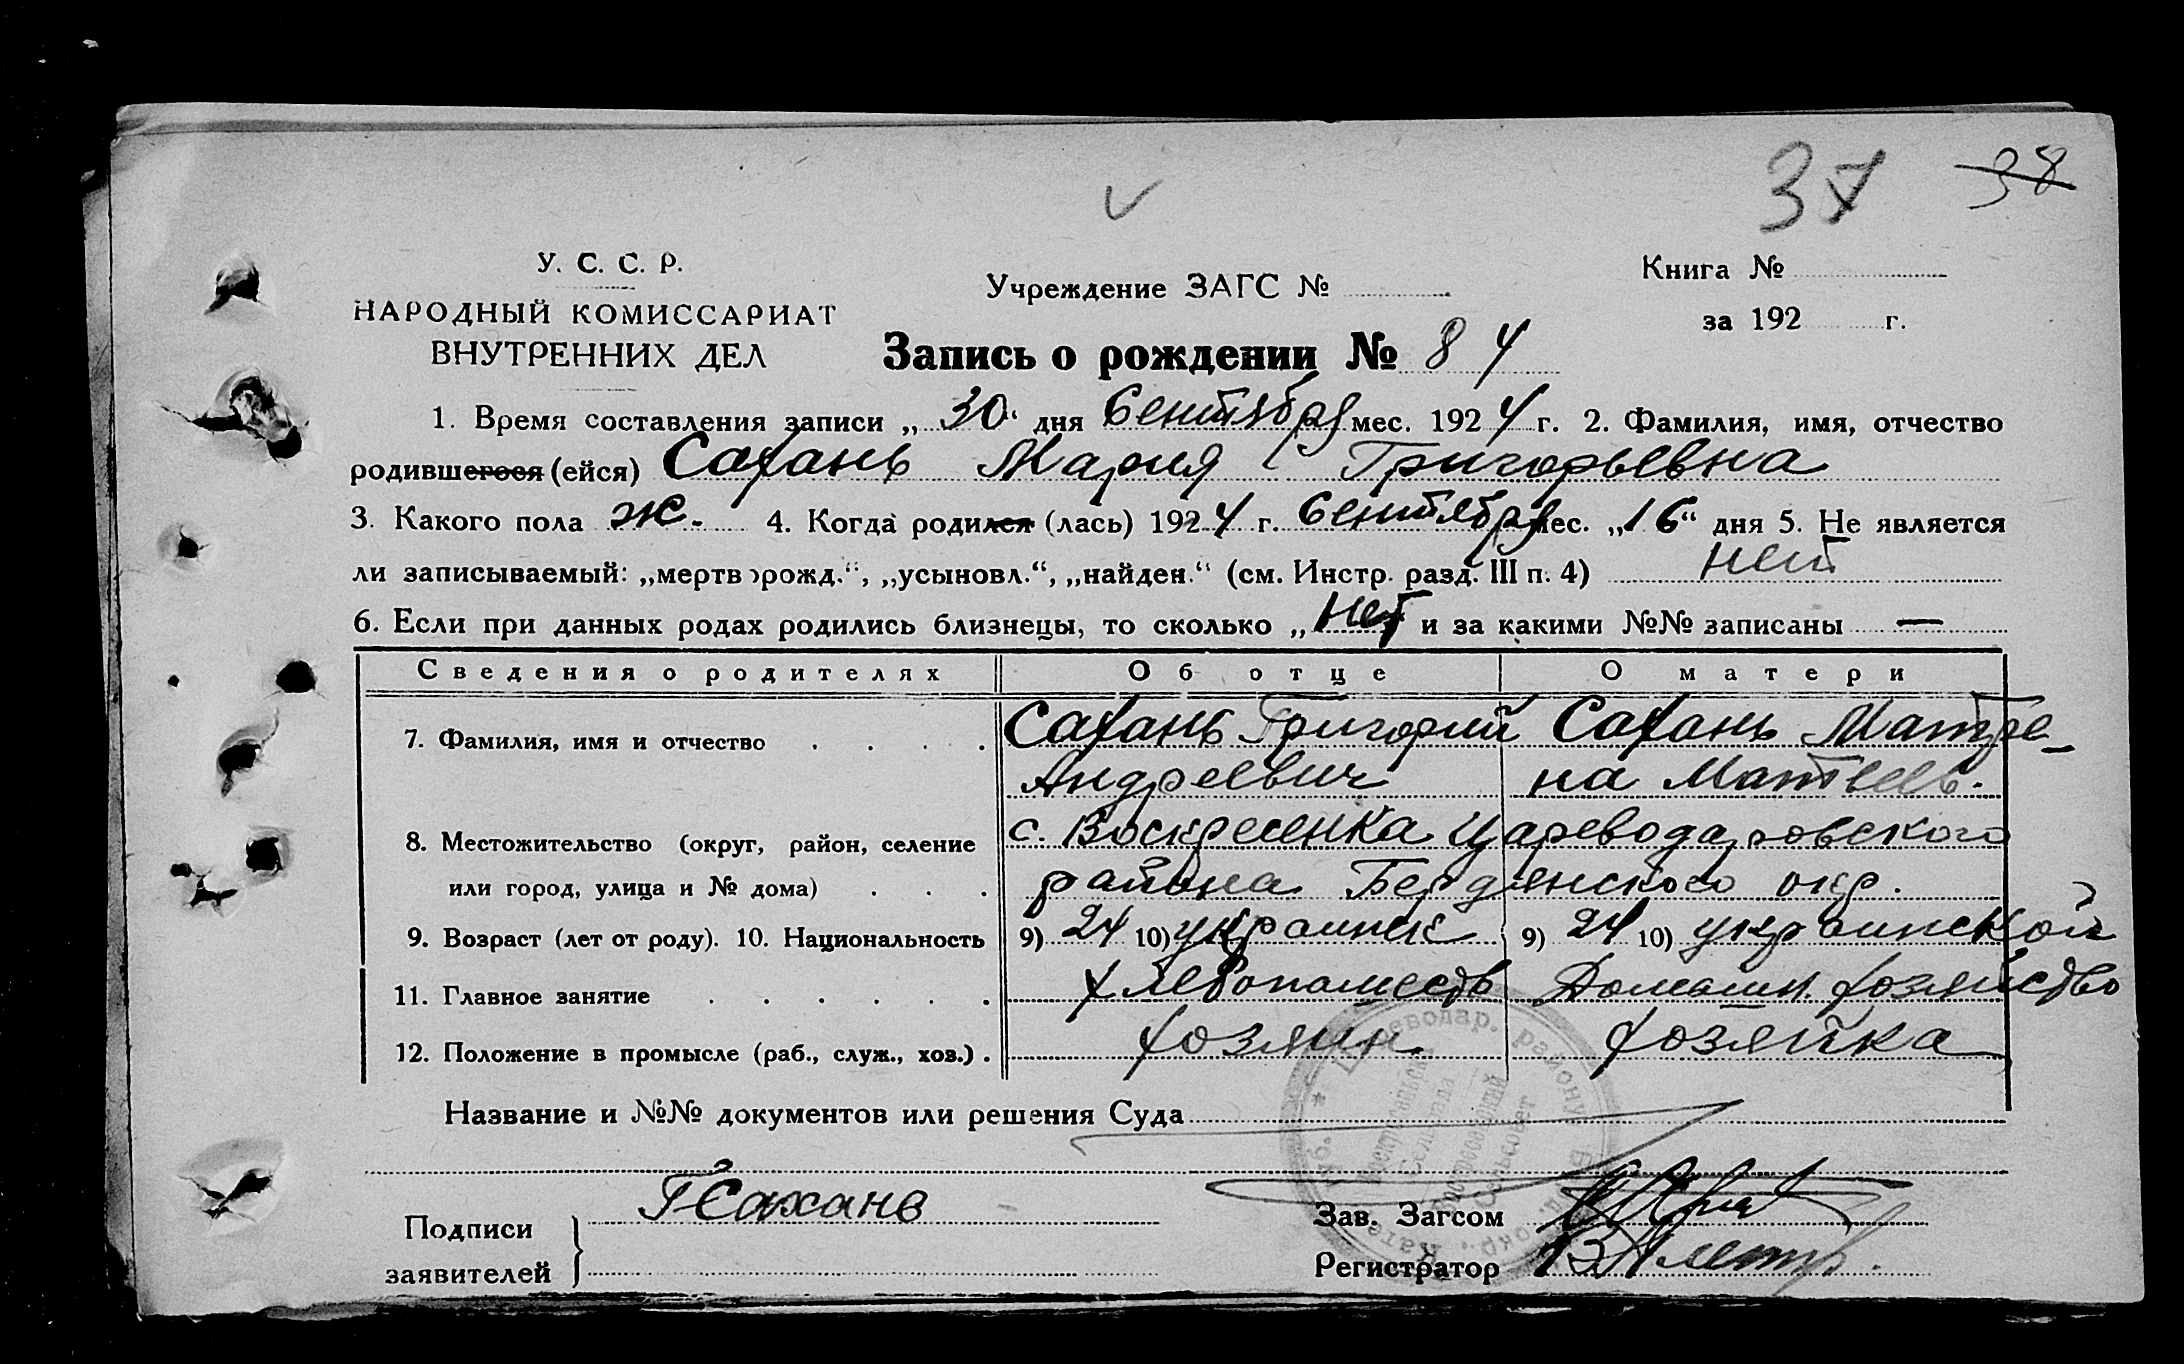 37 38
У. С. С. Р.
НАРОДНЫЙ КОМИССАРИАТ
ВНУТРЕННИХ ДЕЛ
Учреждение ЗАГС №
Книга №
за 192 г.
Запись о рождении № 84
1. Время составления записи „30“ дня Сентября мес. 1924 г. 2. Фамилия, имя, отчество
родившегося (ейся) Сахань Мария Григорьевна
3. Какого пола ж. 4. Когда родился (лась) 1924 г. Сентября мес. „16“ дня 5. Не является
ли записываемый: „мертворожд.“, „усыновл.“, „найден.“ (см. Инстр. разд. III п. 4) нет
6. Если при данных родах родились близнецы, то сколько „нет и за какими №№ записаны —
Сведения о родителях Об отце О матери
7. Фамилия, имя и отчество . . . . Сахань Григорий Сахань Матре-
Андреевич на Матвеев.
8. Местожительство (округ, район, селение с. Воскресенка Цареводаровского
или город, улица и № дома) . . . района Бердянского окр.
9. Возраст (лет от роду). 10. Национальность 9) 24 10) украинск 9) 24 10) украинской
11. Главное занятие . . . . . . хлебопашеств Домашн. хозяйство
12. Положение в промысле (раб., служ., хоз.) . хозяин хозяйка
Название и №№ документов или решения Суда
Подписи
заявителей
Г Сахань
Зав. Загсом
Регистратор